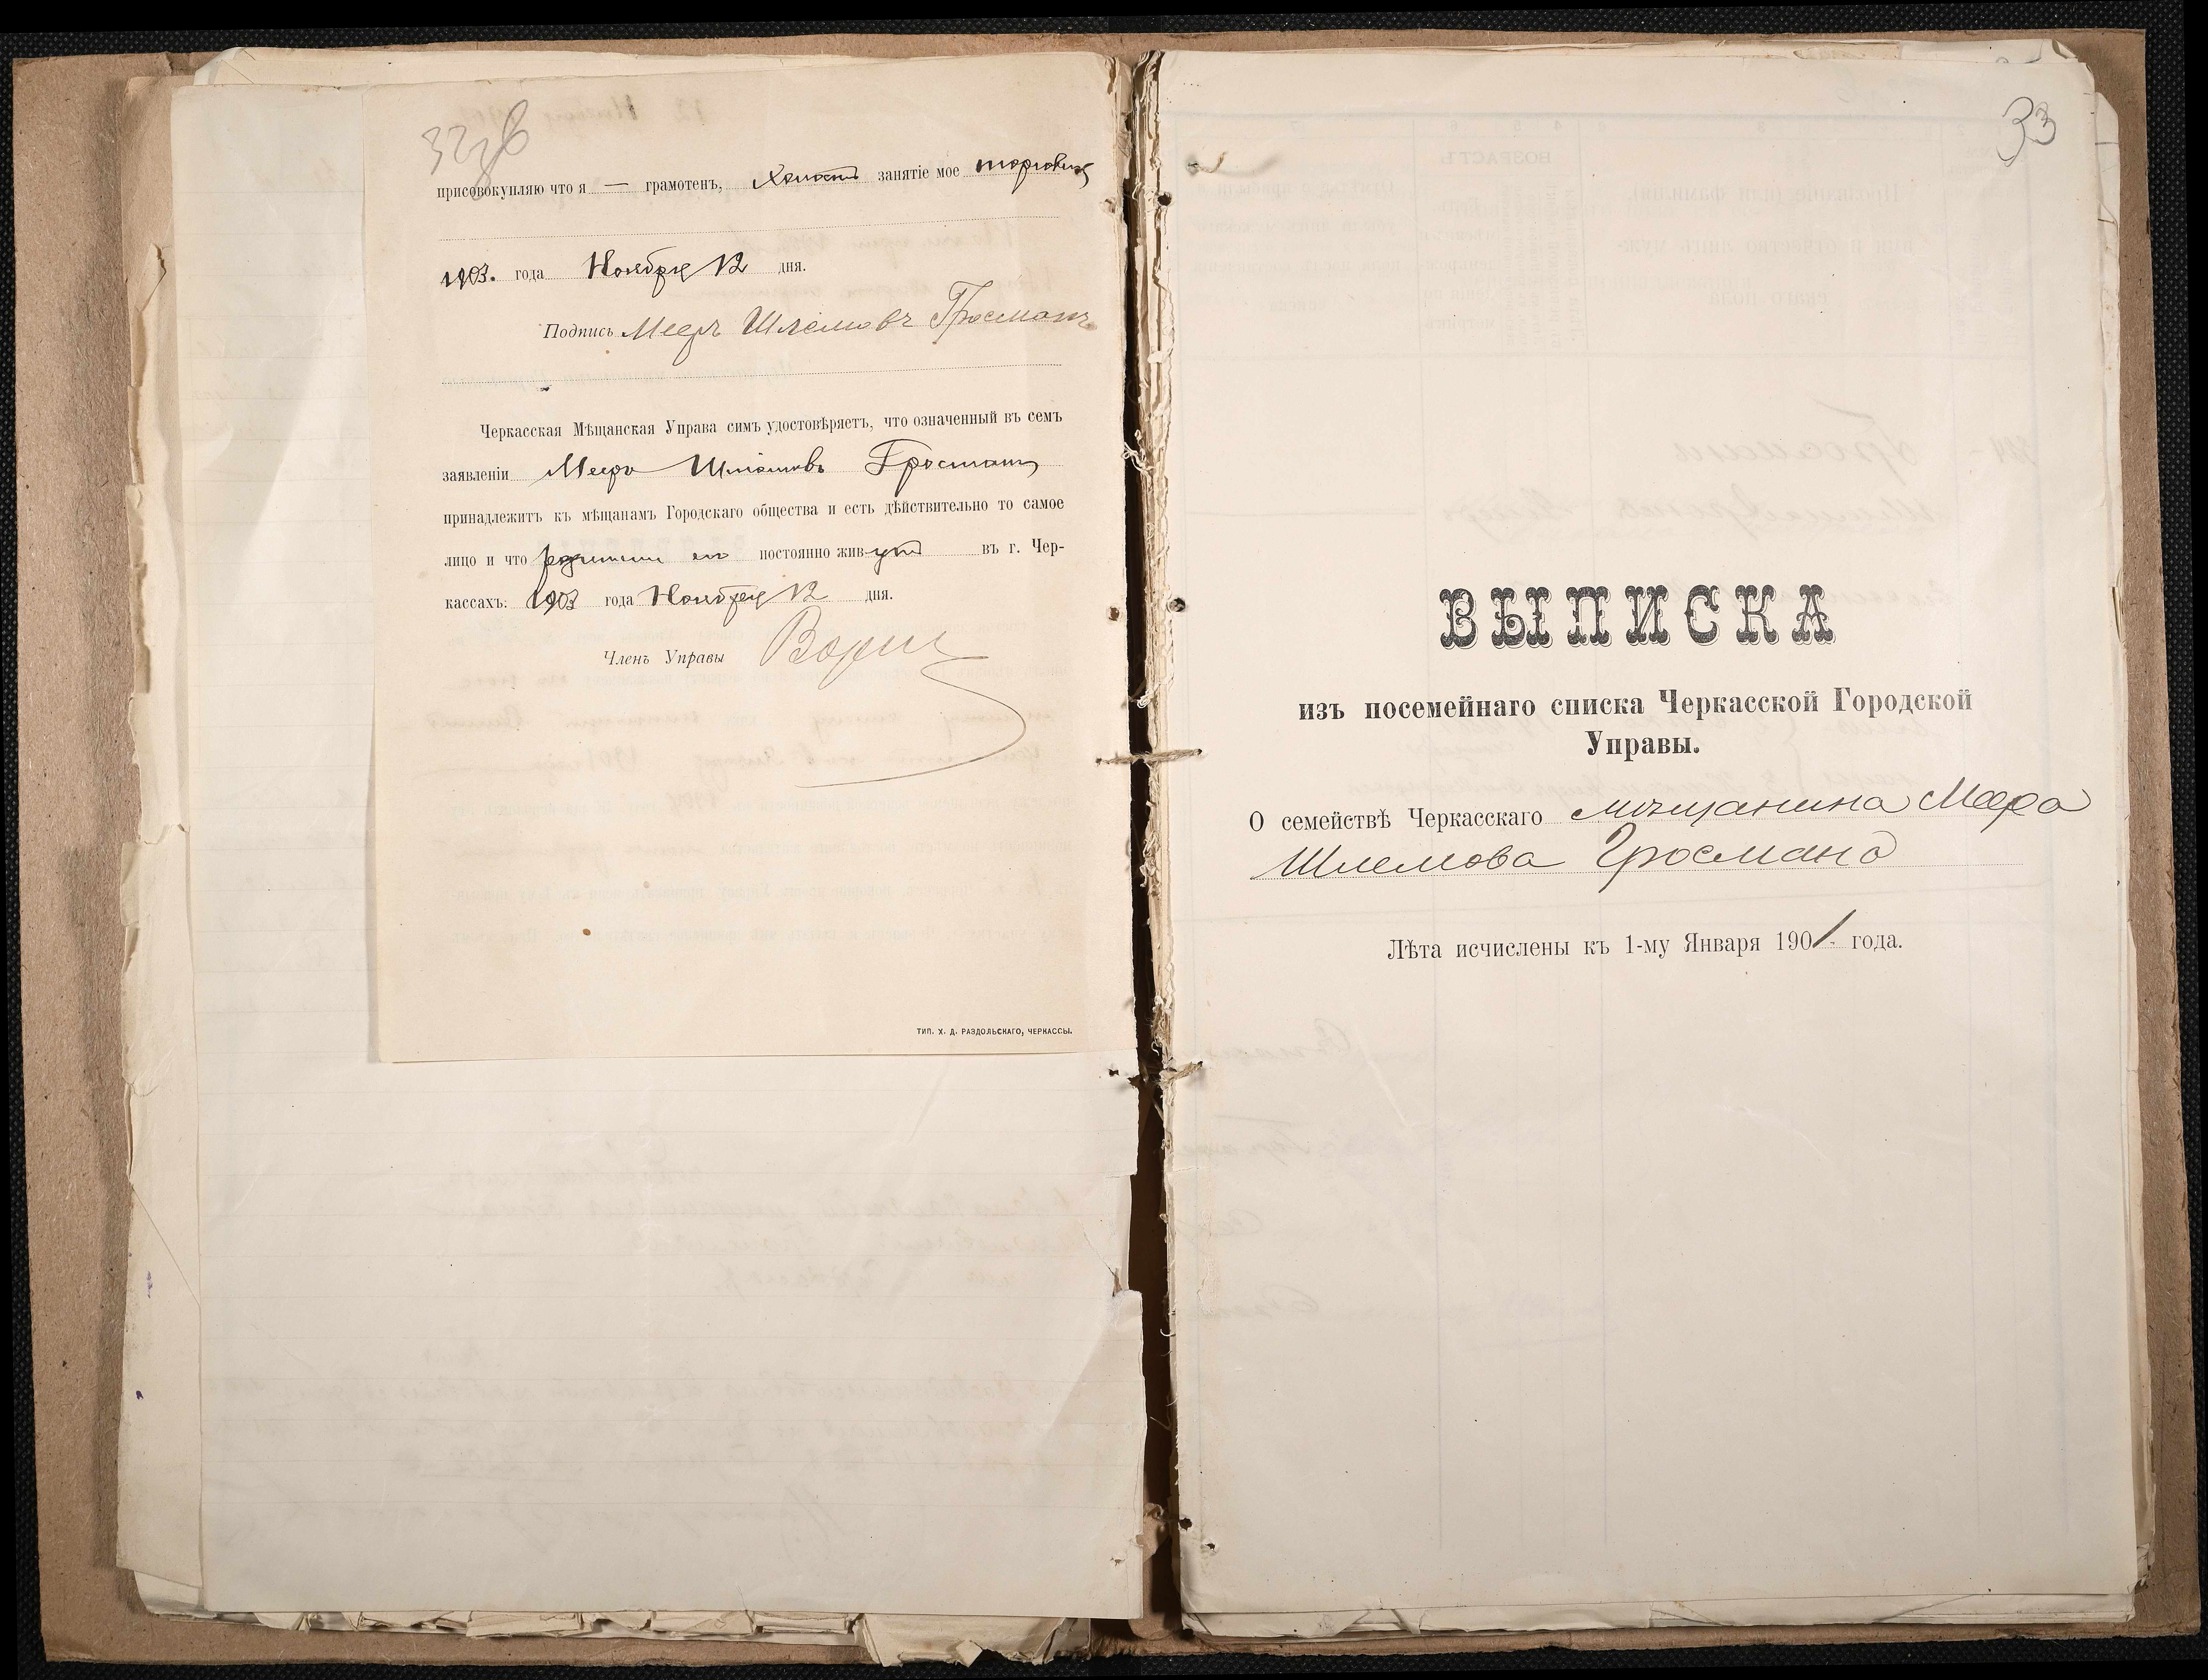 32 об
присовокупляю что я — грамотенъ, холостъ занятіе мое торговля
1903. года Ноября 12 дня.
Подпись Мееръ Шлемовъ Гросманъ
Черкасская Мѣщанская Управа симъ удостовѣряетъ, что означенный въ семъ
заявленіи Мееръ Шлемовъ Гросманъ
принадлежитъ къ мѣщанамъ Городскаго общества и есть дѣйствительно то самое
лицо и что родители его постоянно живутъ въ г. Чер-
кассахъ. 1903 года Ноября 12 дня.
Членъ Управы
ТИП. Х. Д. РАЗДОЛЬСКАГО, ЧЕРКАССЫ.
33
ВЫПИСКА
изъ посемейнаго списка Черкасской Городской
Управы.
О семействѣ Черкасскаго мѣщанина Меера
Шлемова Гросмана
Лѣта исчислены къ 1-му Января 1901 года.